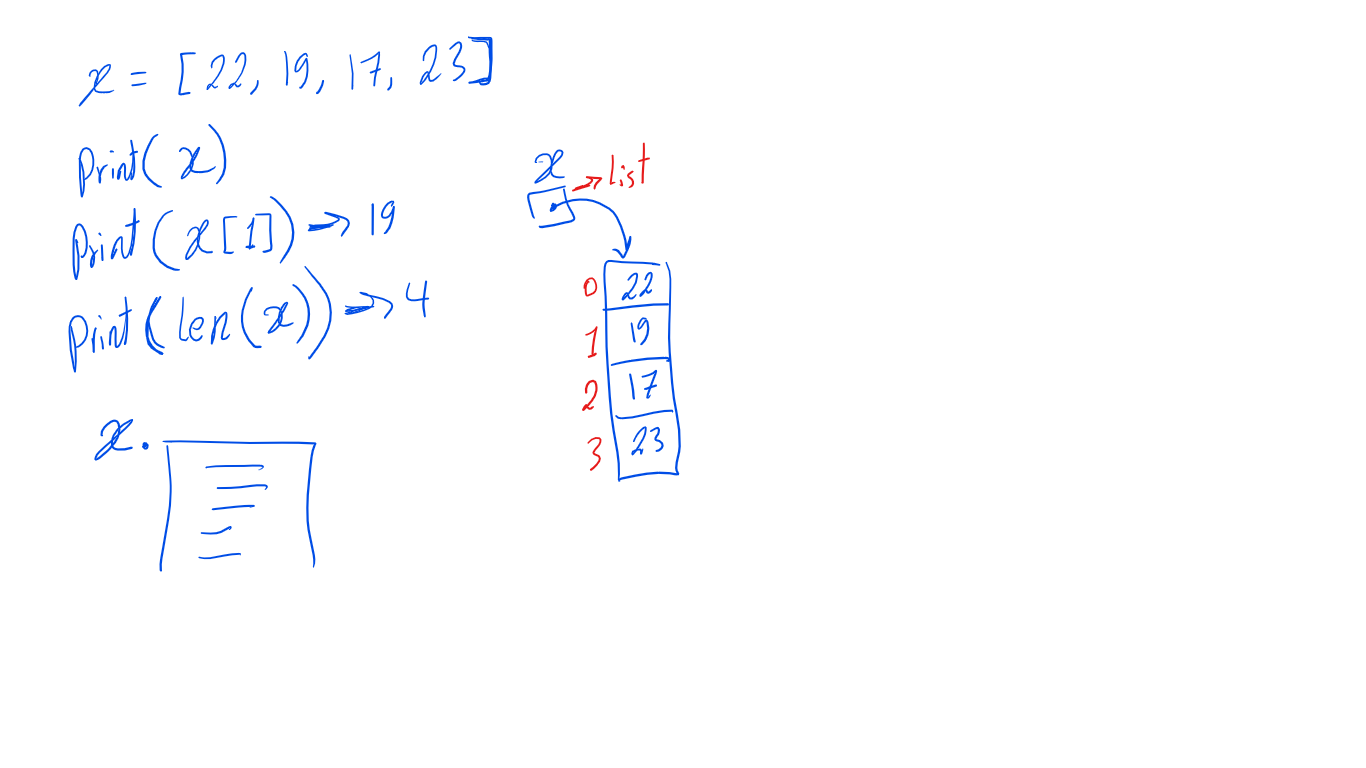 x = [22, 19, 17, 23]
print(x)
print(x[1]) → 19
print(len(x)) → 4
x.
x → list
0 22
1 19
2 17
3 23